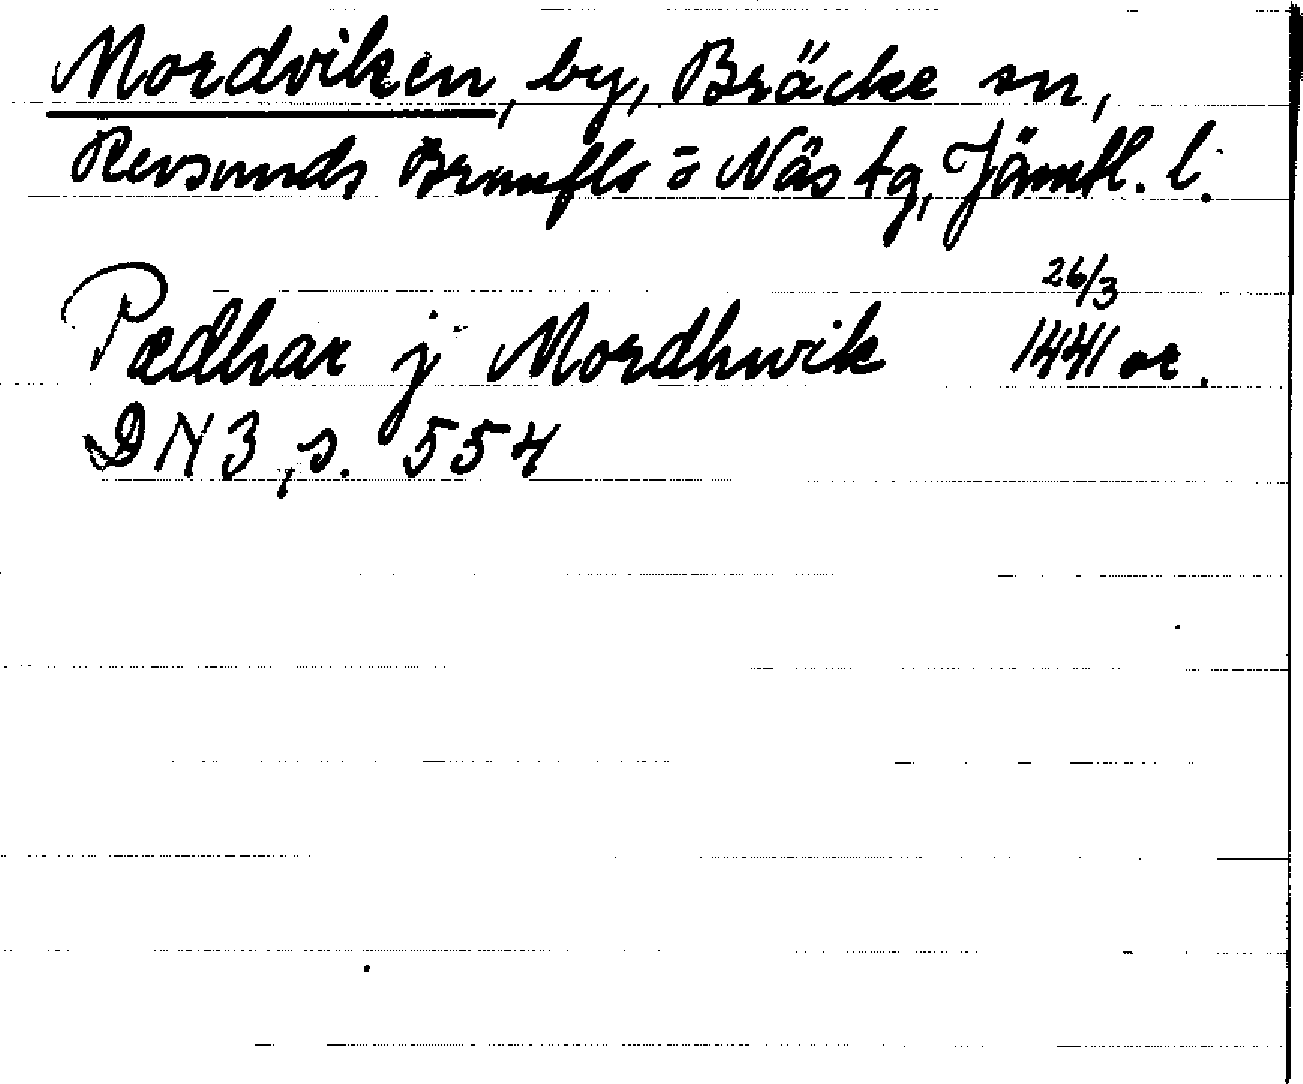 Mordviken, by, Bräcke sn,
Revsunds Brunflo o Näs tg, Jämtl. l.
26/3
Pædhar j Mordhwik 1441 or.
DN 3, s. 554